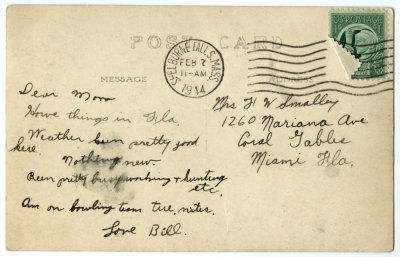 POST CARD
U.S. POSTAGE
SHELBURNE FALLS, MASS.
FEB 7
11-AM
1944
MESSAGE
ADDRESS
Dear Mom
Hows things in Fla.
Weather been pretty good
here.
Nothing new.
Been pretty busy working & hunting
etc.
Am on bowling team tue. nites.
Love Bill.
Mrs F W Smalley
1260 Mariana Ave
Coral Gables
Miami Fla.